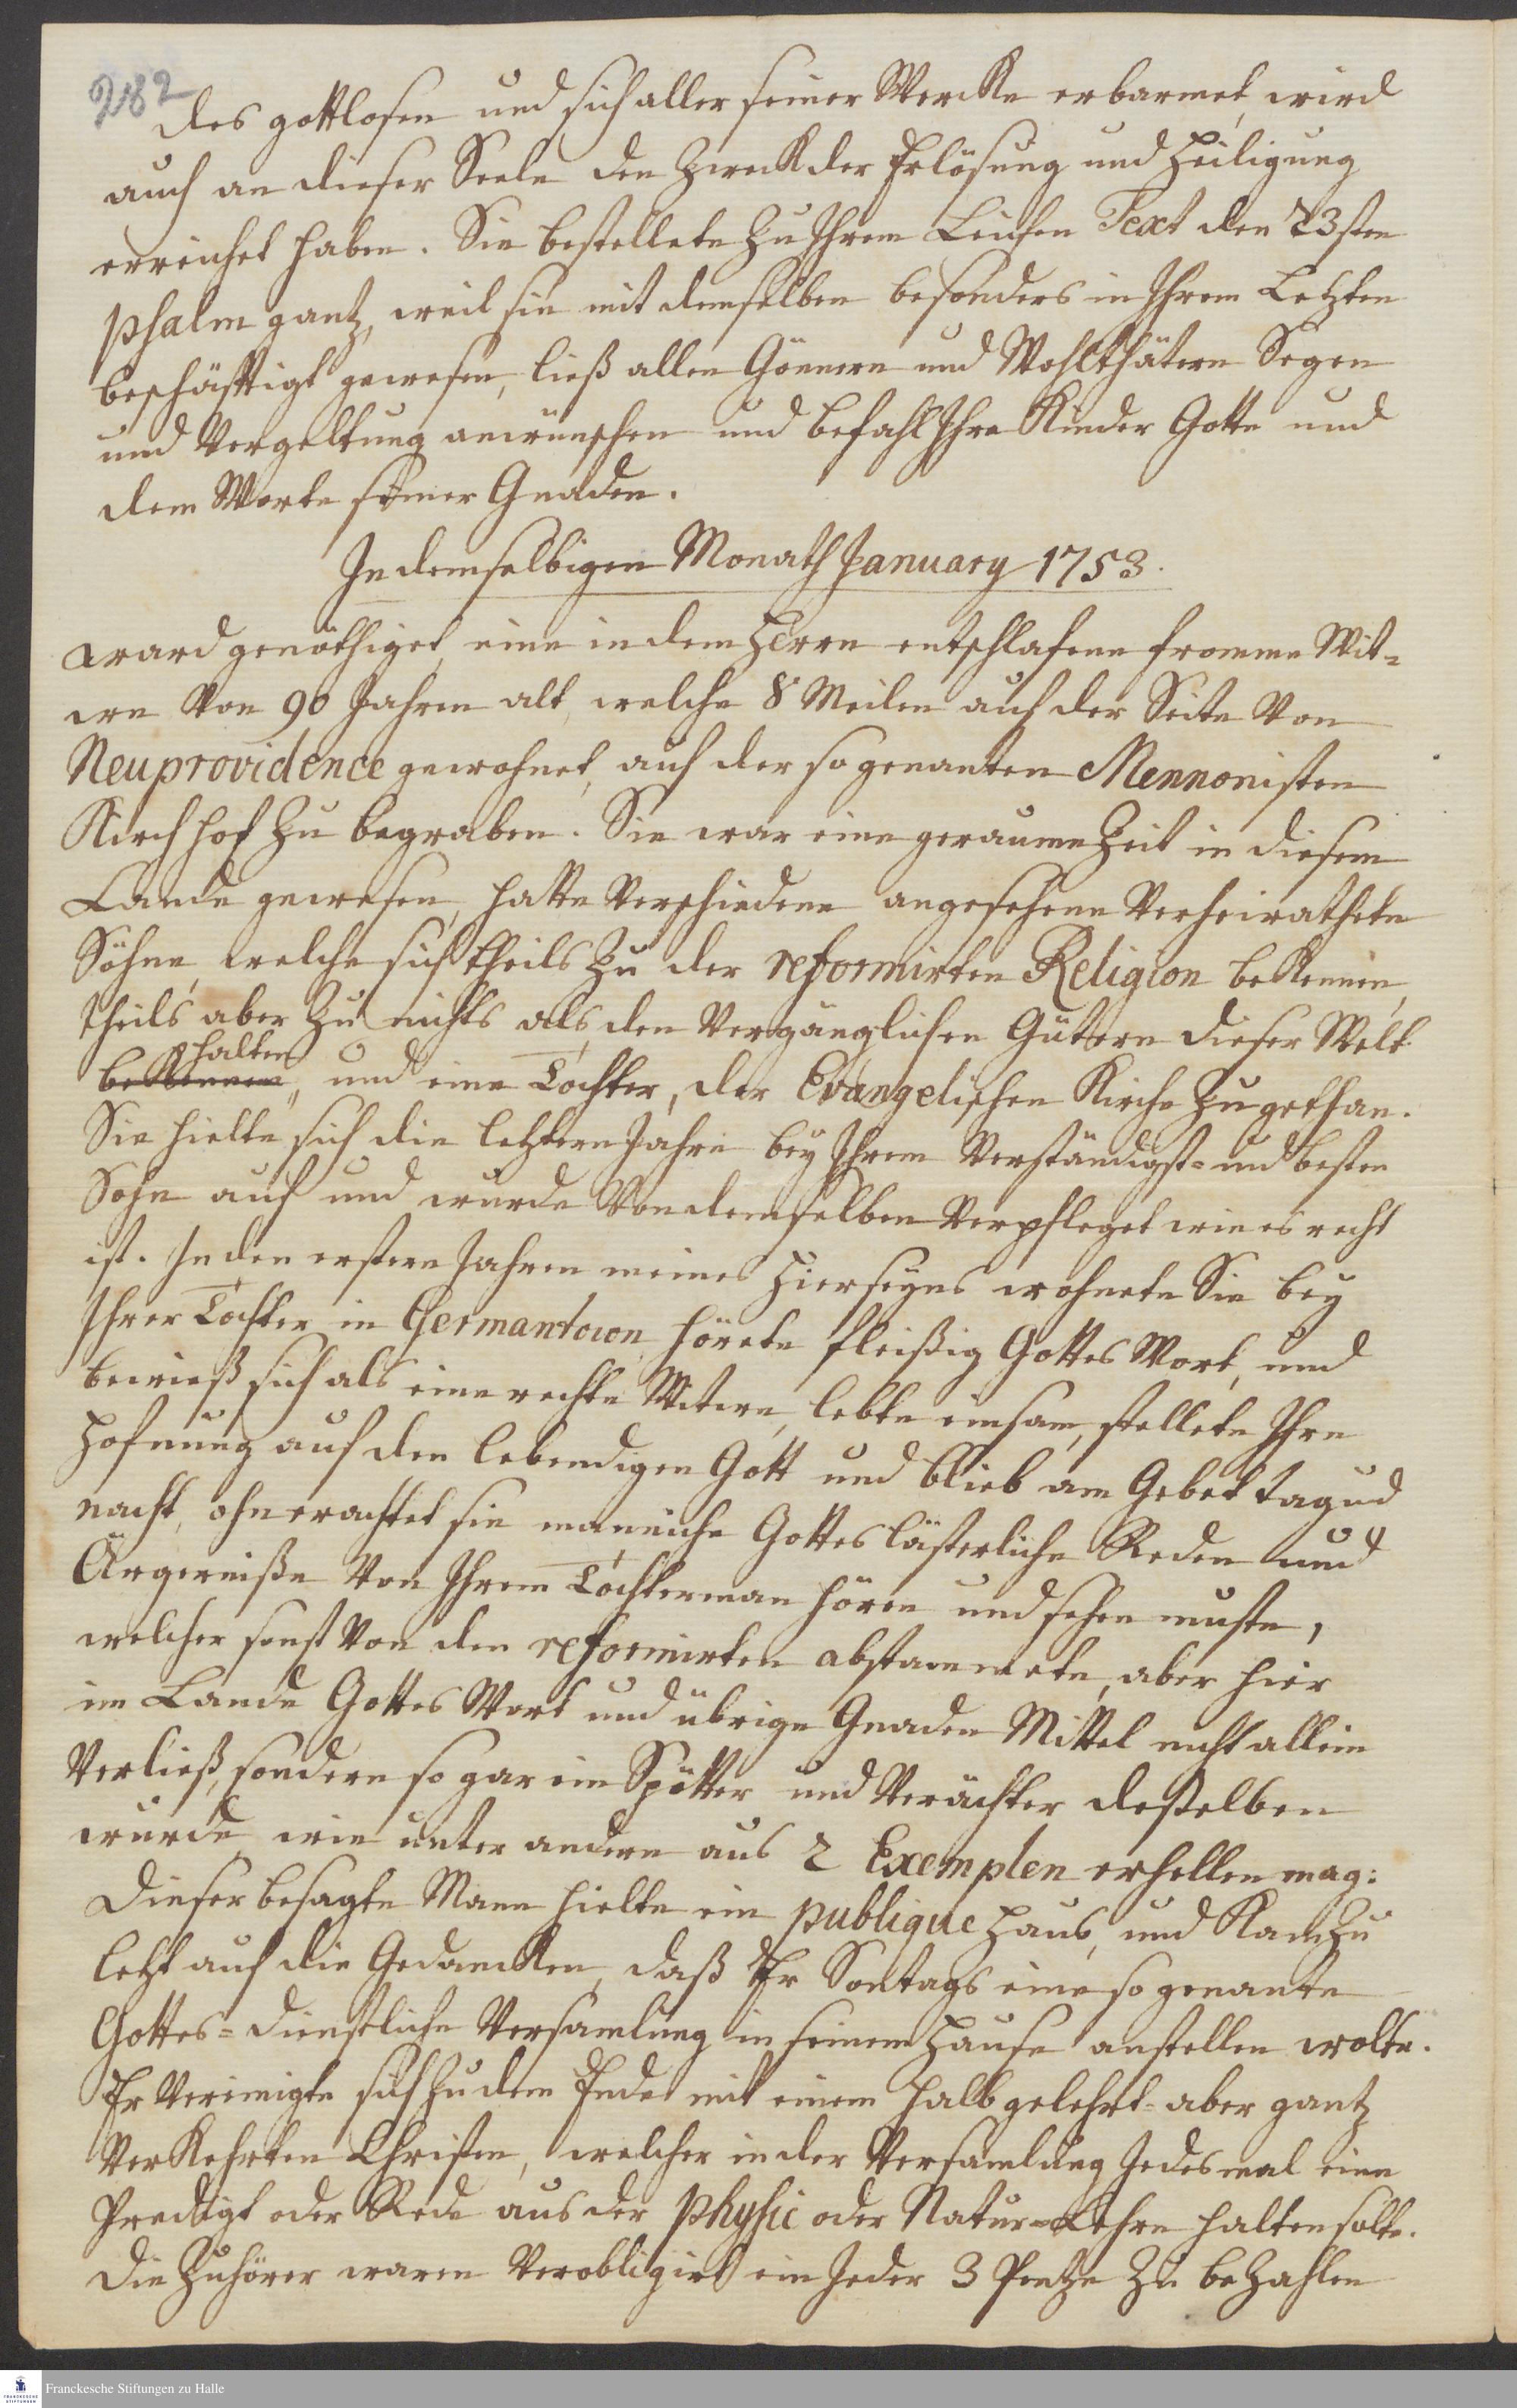 282
des gottlosen und sich aller seiner Wercke erbarmet, wird
auch an dieser Seele den Zweck der Erlösung und Heiligung
erreichet haben. Sie bestellete zu Ihrem Leichen Text den 23sten
Psalm gantz, weil sie mit demselben besonders in Ihrem Letzten
beschäftigt gewesen, ließ allen Gönnern und Wohlthätern Segen
und Vergeltung anwünschen und befahl Ihre Kinder Gotte und
dem Worte seiner Gnaden.
In demselbigen Monath January 1753.
ward genöthiget, eine in dem Herrn entschlafene fromme Wit=
we von 90 Jahren alt, welche 8 Meilen auf der Seite von
Neuprovidence gewohnet, auf der so genanten Mennonisten
Kirchhof zu begraben. Sie war eine geraume Zeit in diesem
Lande gewesen, hatte verschiedene angesehene verheirathete
Söhne, welche sich theils zu der reformirten Religion bekennen,
theils aber zu nichts als den vergänglichen Gütern dieser Welt
halten
bekennen, und eine Tochter, der Evangelischen Kirche zugethan.
Sie hielte sich die letztern Jahre bey Ihrem verständigst= und besten
Sohn auf und wurde von demselben verpfleget wie es recht
ist. In den erstern Jahren meines Hierseyns wohnete Sie bey
Ihrer Tochter in Germantown, hörete fleißig Gottes Wort, und
bewieß sich als eine rechte Witwe, lebte einsam, stellete Ihre
Hofnung auf den lebendigen Gott und blieb am Gebet tag und
nacht, ohnerachtet sie manniche Gotteslästerliche Reden und
Ärgerniße von Ihrem Tochterman hören und sehen muste,
welcher sonst von den reformirten abstammete, aber hier
im Lande Gottes Wort und übrige Gnaden Mittel nicht allein
verließ, sondern so gar ein Spötter und Verächter deßelben
wurde, wie unter andern aus 2 Exemplen erhellen mag:
Dieser besagte Mann hielte ein publique Haus, und kam zu
letzt auf die Gedancken, daß Er Sontags eine so genante
Gottes=dienstliche Versamlung in seinem Hause anstellen wolte.
Er vereinigte sich zu dem Ende mit einem halb gelehrt= aber gantz
verkehrten Christen, welcher in der Versamlung Jedesmal eine
Predigt oder Rede aus der Physic oder Natur=Lehre halten solte.
Die Zuhörer waren verobligirt ein Jeder 3 Pentze zu bezahlen
Franckesche Stiftungen zu Halle